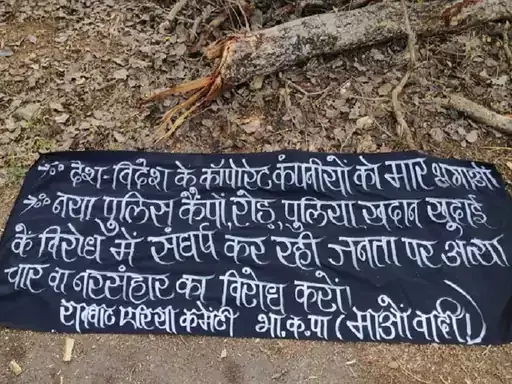 देश-विदेश के कॉर्पोरेट कंपनीयों को मार भगाओ
नया पुलिस कैंपों, रोड़, पुलिया, खदान खुदाई
के विरोध में संघर्ष कर रही जनता पर अत्या
चार वा नरसंहार का विरोध करों!
एरिया कमेटी भा.क.पा (माओंवादी)